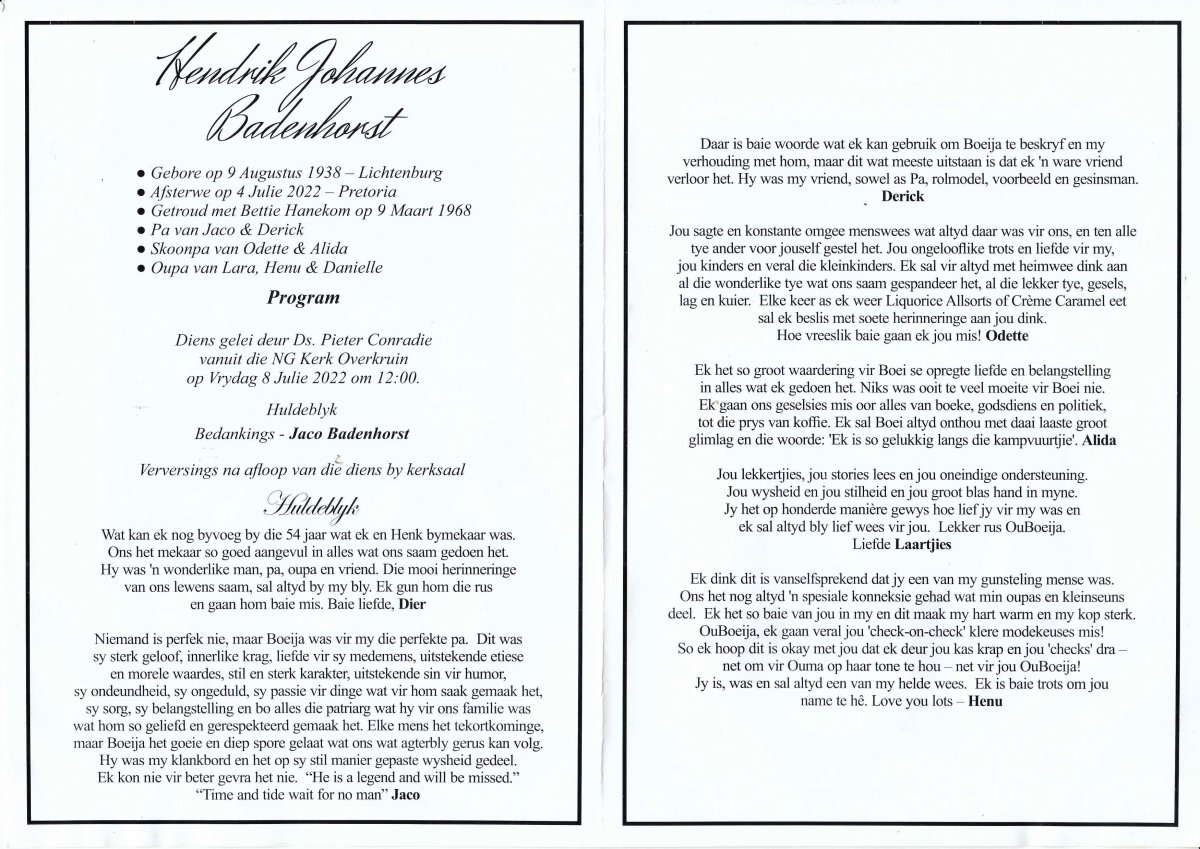 Hendrik Johannes
Badenhorst
● Gebore op 9 Augustus 1938 – Lichtenburg
● Afsterwe op 4 Julie 2022 – Pretoria
● Getroud met Bettie Hanekom op 9 Maart 1968
● Pa van Jaco & Derick
● Skoonpa van Odette & Alida
● Oupa van Lara, Henu & Danielle
Program
Diens gelei deur Ds. Pieter Conradie
vanuit die NG Kerk Overkruin
op Vrydag 8 Julie 2022 om 12:00.
Huldeblyk
Bedankings - Jaco Badenhorst
Verversings na afloop van die diens by kerksaal
Huldeblyk
Wat kan ek nog byvoeg by die 54 jaar wat ek en Henk bymekaar was.
Ons het mekaar so goed aangevul in alles wat ons saam gedoen het.
Hy was 'n wonderlike man, pa, oupa en vriend. Die mooi herinneringe
van ons lewens saam, sal altyd by my bly. Ek gun hom die rus
en gaan hom baie mis. Baie liefde, Dier
Niemand is perfek nie, maar Boeija was vir my die perfekte pa. Dit was
sy sterk geloof, innerlike krag, liefde vir sy medemens, uitstekende etiese
en morele waardes, stil en sterk karakter, uitstekende sin vir humor,
sy ondeundheid, sy ongeduld, sy passie vir dinge wat vir hom saak gemaak het,
sy sorg, sy belangstelling en bo alles die patriarg wat hy vir ons familie was
wat hom so geliefd en gerespekteerd gemaak het. Elke mens het tekortkominge,
maar Boeija het goeie en diep spore gelaat wat ons wat agterbly gerus kan volg.
Hy was my klankbord en het op sy stil manier gepaste wysheid gedeel.
Ek kon nie vir beter gevra het nie. “He is a legend and will be missed.”
“Time and tide wait for no man” Jaco
Daar is baie woorde wat ek kan gebruik om Boeija te beskryf en my
verhouding met hom, maar dit wat meeste uitstaan is dat ek 'n ware vriend
verloor het. Hy was my vriend, sowel as Pa, rolmodel, voorbeeld en gesinsman.
Derick
Jou sagte en konstante omgee menswees wat altyd daar was vir ons, en ten alle
tye ander voor jouself gestel het. Jou ongelooflike trots en liefde vir my,
jou kinders en veral die kleinkinders. Ek sal vir altyd met heimwee dink aan
al die wonderlike tye wat ons saam gespandeer het, al die lekker tye, gesels,
lag en kuier. Elke keer as ek weer Liquorice Allsorts of Crème Caramel eet
sal ek beslis met soete herinneringe aan jou dink.
Hoe vreeslik baie gaan ek jou mis! Odette
Ek het so groot waardering vir Boei se opregte liefde en belangstelling
in alles wat ek gedoen het. Niks was ooit te veel moeite vir Boei nie.
Ek gaan ons geselsies mis oor alles van boeke, godsdiens en politiek,
tot die prys van koffie. Ek sal Boei altyd onthou met daai laaste groot
glimlag en die woorde: 'Ek is so gelukkig langs die kampvuurtjie'. Alida
Jou lekkertjies, jou stories lees en jou oneindige ondersteuning.
Jou wysheid en jou stilheid en jou groot blas hand in myne.
Jy het op honderde manière gewys hoe lief jy vir my was en
ek sal altyd bly lief wees vir jou. Lekker rus OuBoeija.
Liefde Laartjies
Ek dink dit is vanselfsprekend dat jy een van my gunsteling mense was.
Ons het nog altyd 'n spesiale konneksie gehad wat min oupas en kleinseuns
deel. Ek het so baie van jou in my en dit maak my hart warm en my kop sterk.
OuBoeija, ek gaan veral jou 'check-on-check' klere modekeuses mis!
So ek hoop dit is okay met jou dat ek deur jou kas krap en jou 'checks' dra –
net om vir Ouma op haar tone te hou – net vir jou OuBoeija!
Jy is, was en sal altyd een van my helde wees. Ek is baie trots om jou
name te hê. Love you lots – Henu